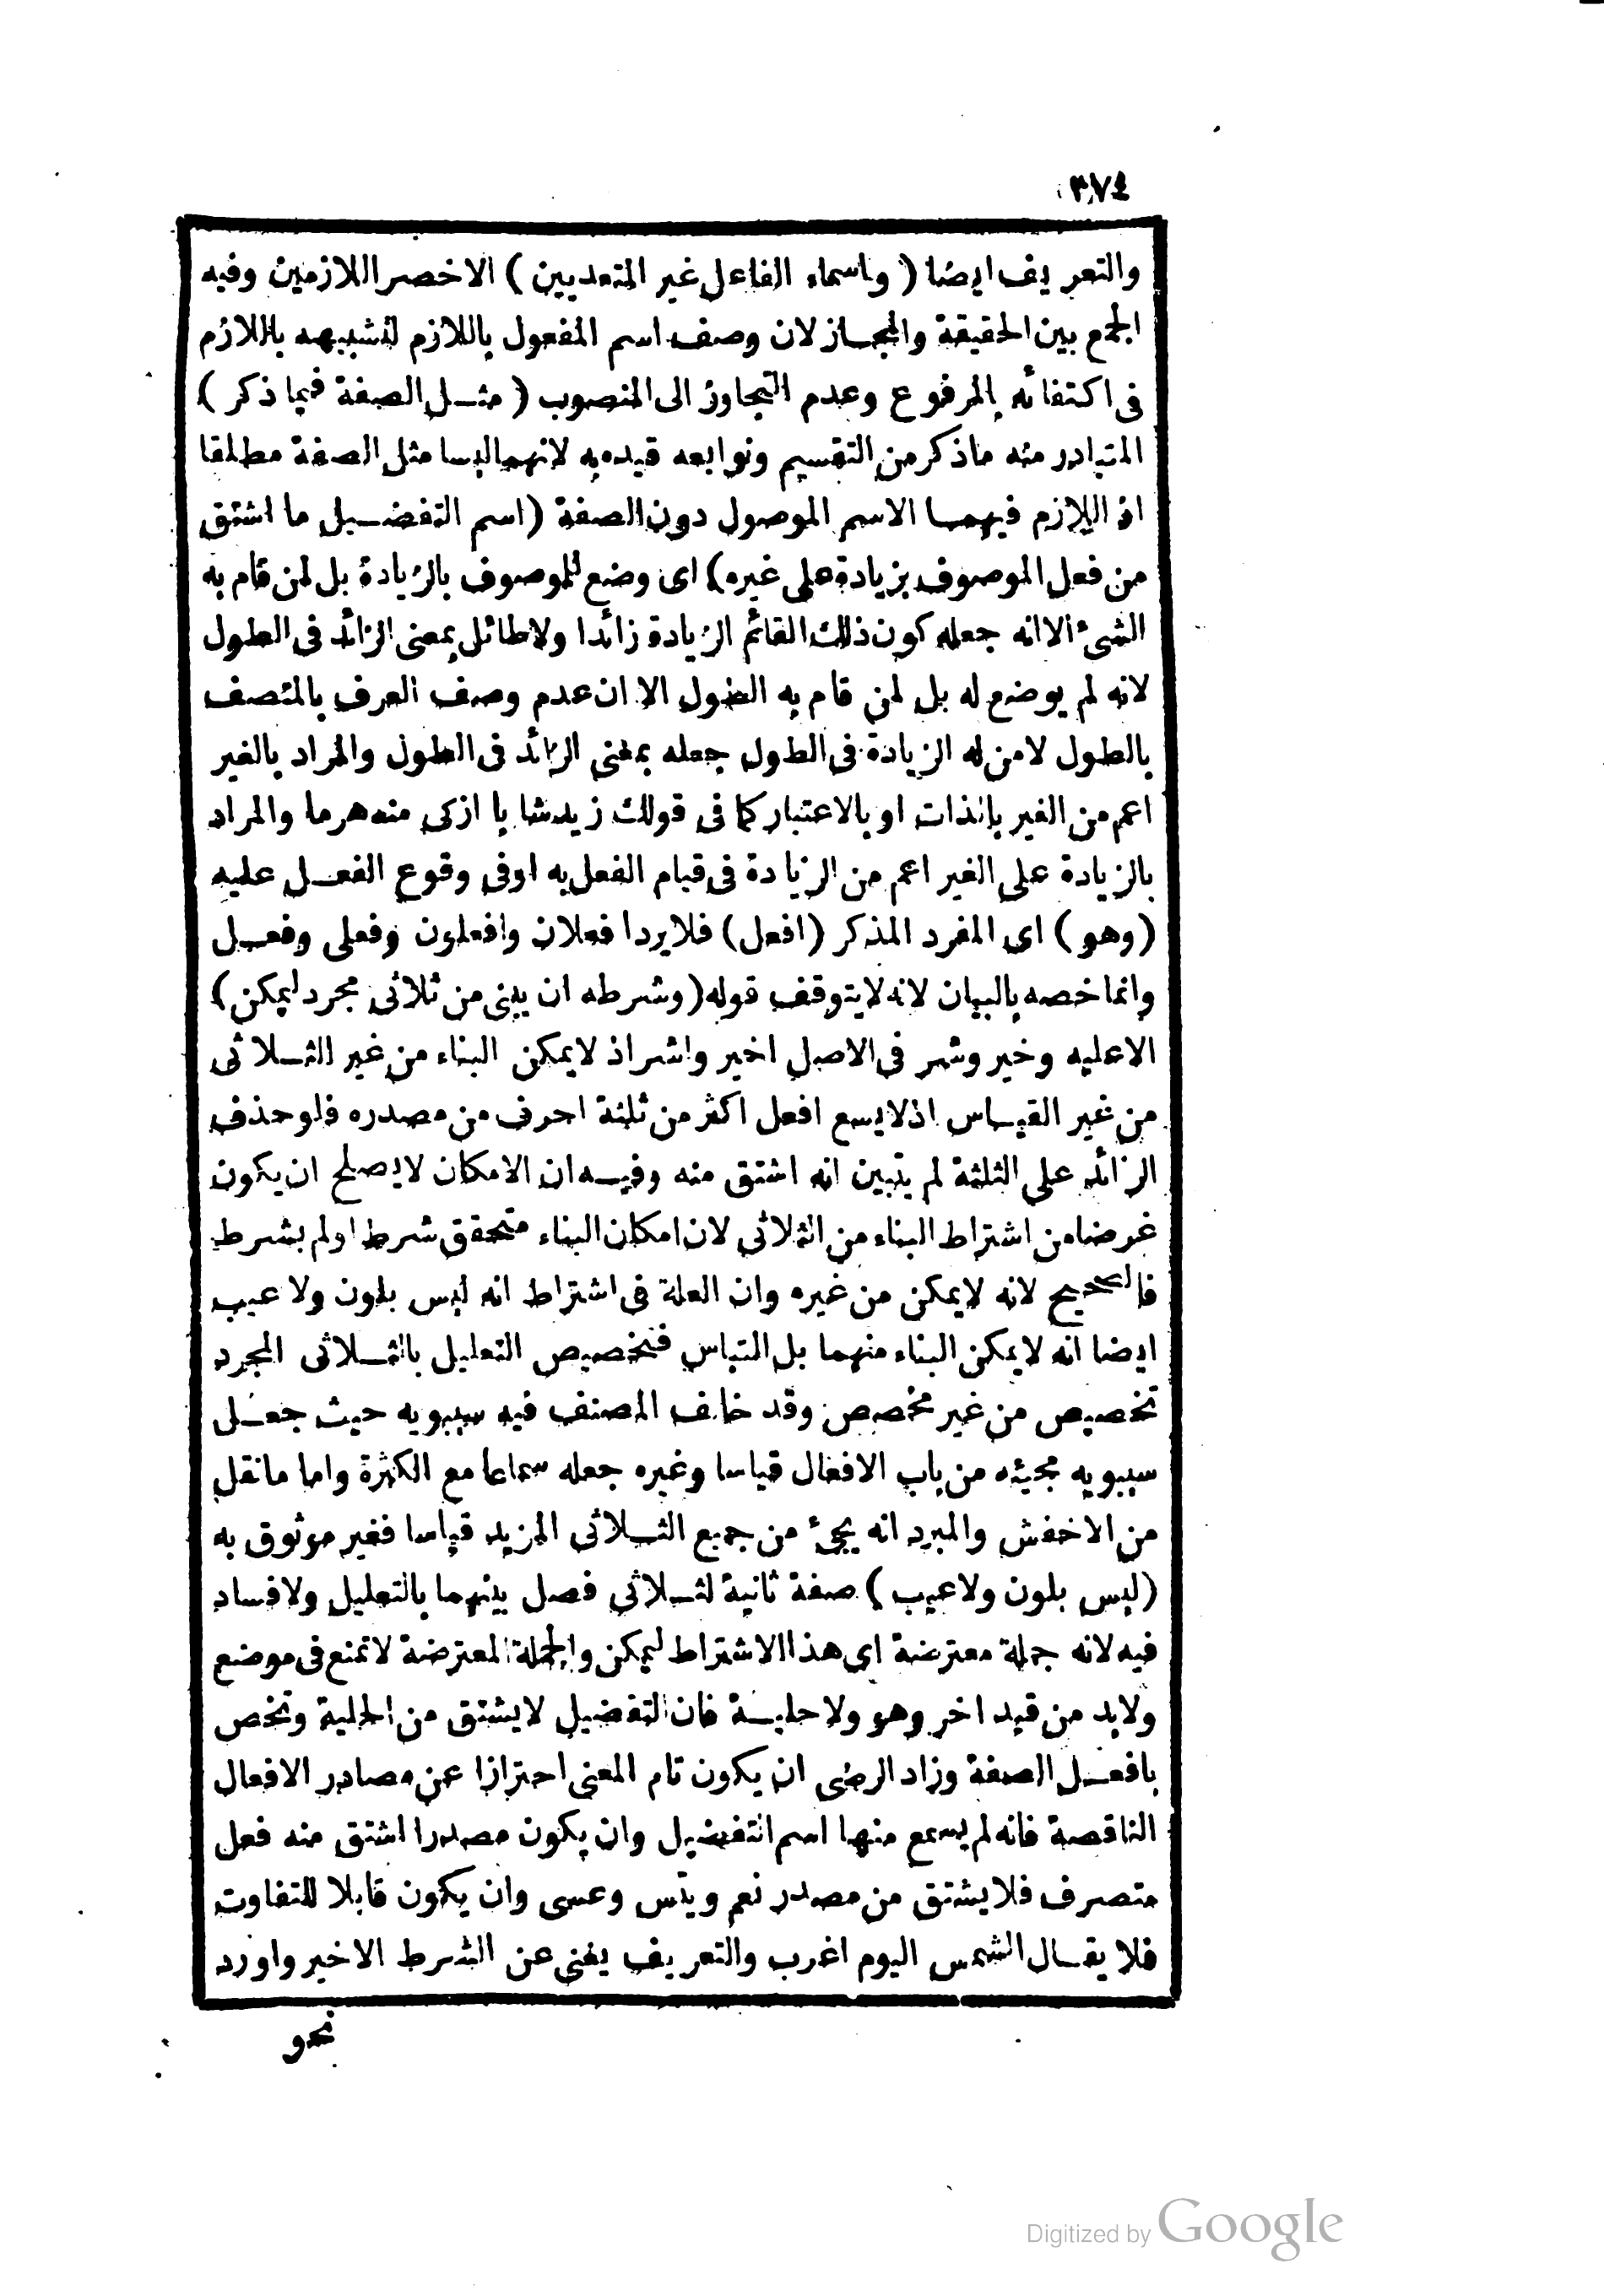 ٣٧٤
والتعريف ايضا ( واسماء الفاعل غير المتعديين ) الاخصر اللازمين وفيه
الجمع بين الحقيقة والمجاز لان وصف اسم المفعول باللازم لتشبيهه باللازم
فى اكتفائه بالمرفوع وعدم التجاوز الى المنصوب ( مثل الصفة فيما ذكر )
المتبادر منه ماذكر من التقسيم وتوابعه قيده به لانهما ليسا مثل الصفة مطلقا
اذ اللازم فيهما الاسم الموصول دون الصفة (اسم التفضيل ما اشتق
من فعل الموصوف بزيادة على غيره) اى وضع للموصوف بالزيادة بل لمن قام به
الشئ الا انه جعله كون ذلك القائم الزيادة زائدا ولاطائل بمعنى الزائد فى الطول
لانه لم يوضع له بل لمن قام به الطول الا ان عدم وصف العرف بالمتصف
بالطول لا من له الزيادة فى الطول جعله بمعنى الزائد فى الطول والمراد بالغير
اعم من الغير بالذات او بالاعتبار كما فى قولك زيد شابا ازكى منه هرما والمراد
بالزيادة على الغير اعم من الزيادة فى قيام الفعل به اوفى وقوع الفعل عليه
(وهو ) اى المفرد المذكر (افعل) فلايرد افعلان وافعلون وفعلى وفعل
وانما خصه بالبيان لانه لايتوقف قوله (وشرطه ان يبنى من ثلاثى مجرد ليمكن)
الاعليه وخير وشر فى الاصل اخير واشر اذ لايمكن البناء من غير الثلاثى
من غير القياس اذلايسع افعل اكثر من ثلثة احرف من مصدره فلو حذف
الزائد على الثلثة لم يتبين انه اشتق منه وفيه ان الامكان لايصلح ان يكون
غرضا من اشتراط البناء من الثلاثى لان امكان البناء متحقق شرط او لم يشرط
فالصحيح لانه لايمكن من غيره وان العلة فى اشتراط انه ليس بلون ولا عيب
ايضا انه لايمكن البناء منهما بل التباس فتخصيص التعليل بالثلاثى المجرد
تخصيص من غير مخصص وقد خالف المصنف فيه سيبويه حيث جعل
سيبويه مجيئه من باب الافعال قياسا وغيره جعله سماعا مع الكثرة واما مانقل
من الاخفش والمبرد انه يجئ من جميع الثلاثى المزيد قياسا فغير موثوق به
(ليس بلون ولاعيب ) صفة ثانية لثلاثى فصل بينهما بالتعليل ولافساد
فيه لانه جملة معترضة اى هذا الاشتراط ليمكن والجملة المعترضة لاتمنع فى موضع
ولابد من قيد اخر وهو ولاحلية فان التفضيل لايشتق من الحلية وتخص
بافعل الصفة وزاد الرضى ان يكون تام المعنى احترازا عن مصادر الافعال
الناقصة فانه لم يسمع منها اسم التفضيل وان يكون مصدرا اشتق منه فعل
متصرف فلايشتق من مصدر نعم وبئس وعسى وان يكون قابلا للتفاوت
فلا يقال الشمس اليوم اغرب والتعريف يغنى عن الشرط الاخير واورد
نحو
Digitized by Google